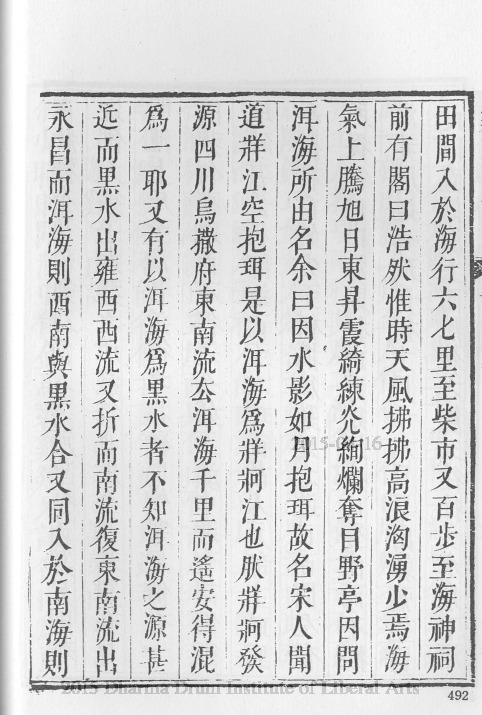 田間入於海行六七里至柴市又百步至海神祠
前有閣曰浩然惟時天風拂拂高浪洶湧少焉海
氣上騰旭日東昇霞綺練光絢爛奪目野亭因問
洱海所由名余曰因水影如月抱珥故名宋人聞
道牂江空抱珥是以洱海爲牂牁江也然牂牁發
源四川烏撒府東南流去洱海千里而遙安得混
爲一耶又有以洱海爲黑水者不知洱海之源甚
近而黑水出雍西西流又折而南流復東南流出
永昌而洱海則西南與黑水合又同入於南海則
2015 Dharma Drum Institute of Liberal Arts
492